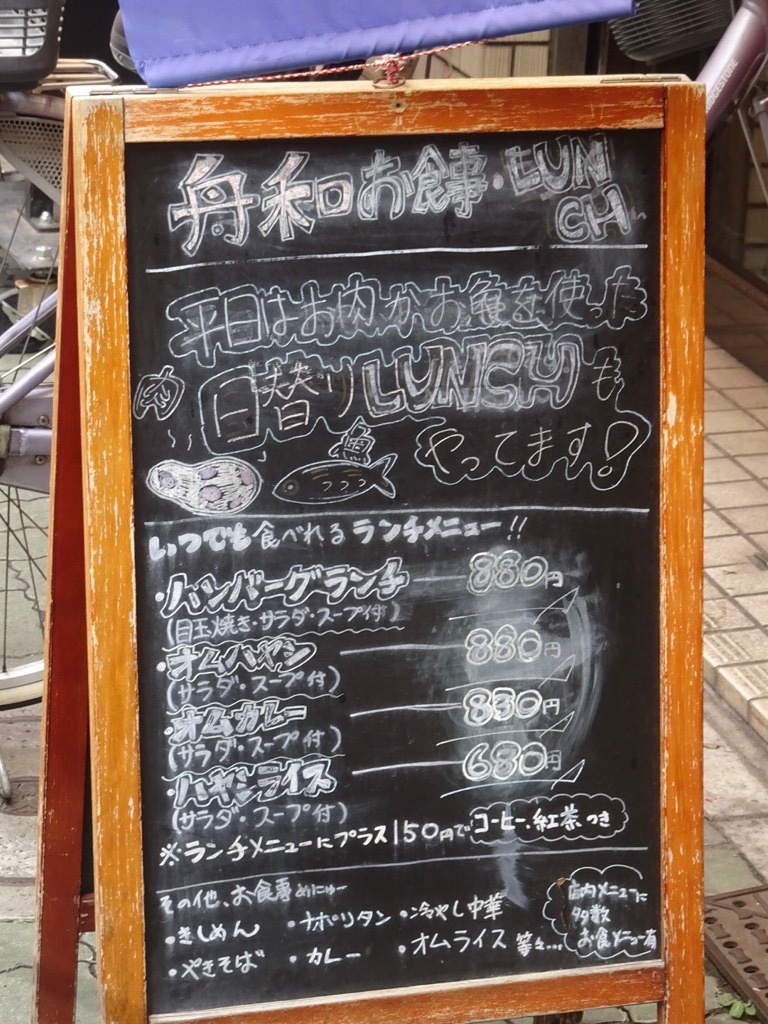 舟和お食事・LUNCH
平日はお肉かお魚を使った
肉
日替りLUNCHも
魚
やってます!
いつでも食べれるランチメニュー!!
・ハンバーグランチ 880円
(目玉焼き・サラダ・スープ付)
・オムハヤシ 880円
(サラダ・スープ付)
・オムカレー 830円
(サラダ・スープ付)
・ハヤシライス 680円
(サラダ・スープ付)
※ランチメニューにプラス150円でコーヒー、紅茶つき
その他、お食事めにゅー
・きしめん ・ナポリタン ・冷やし中華
・やきそば ・カレー ・オムライス 等々…
店内メニューに
多数
お食メニュー有